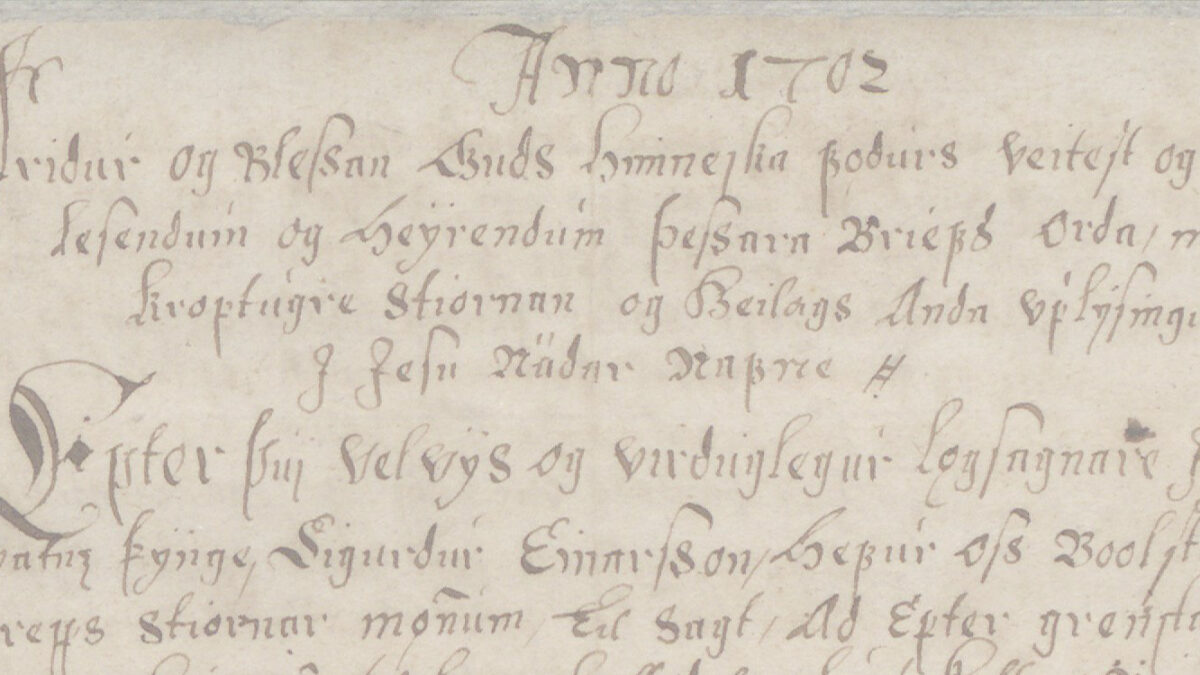 Anno 1702
Fridur og Blessan Guds Himneska Födurs veitest og
lesendum og Heÿrendum Þessara Briefs Orda, m
kroptugre stiornan og Heilags Anda vplysinge
J Jesu Nädar Nafne
Epter þuj velvÿs og virduglegur logsagnare J
vatnz þÿnge, Sigurdur Einarsson, Hefur oss Boolst
repps stiornar monnum, Til sagt, Ad Epter grenstu